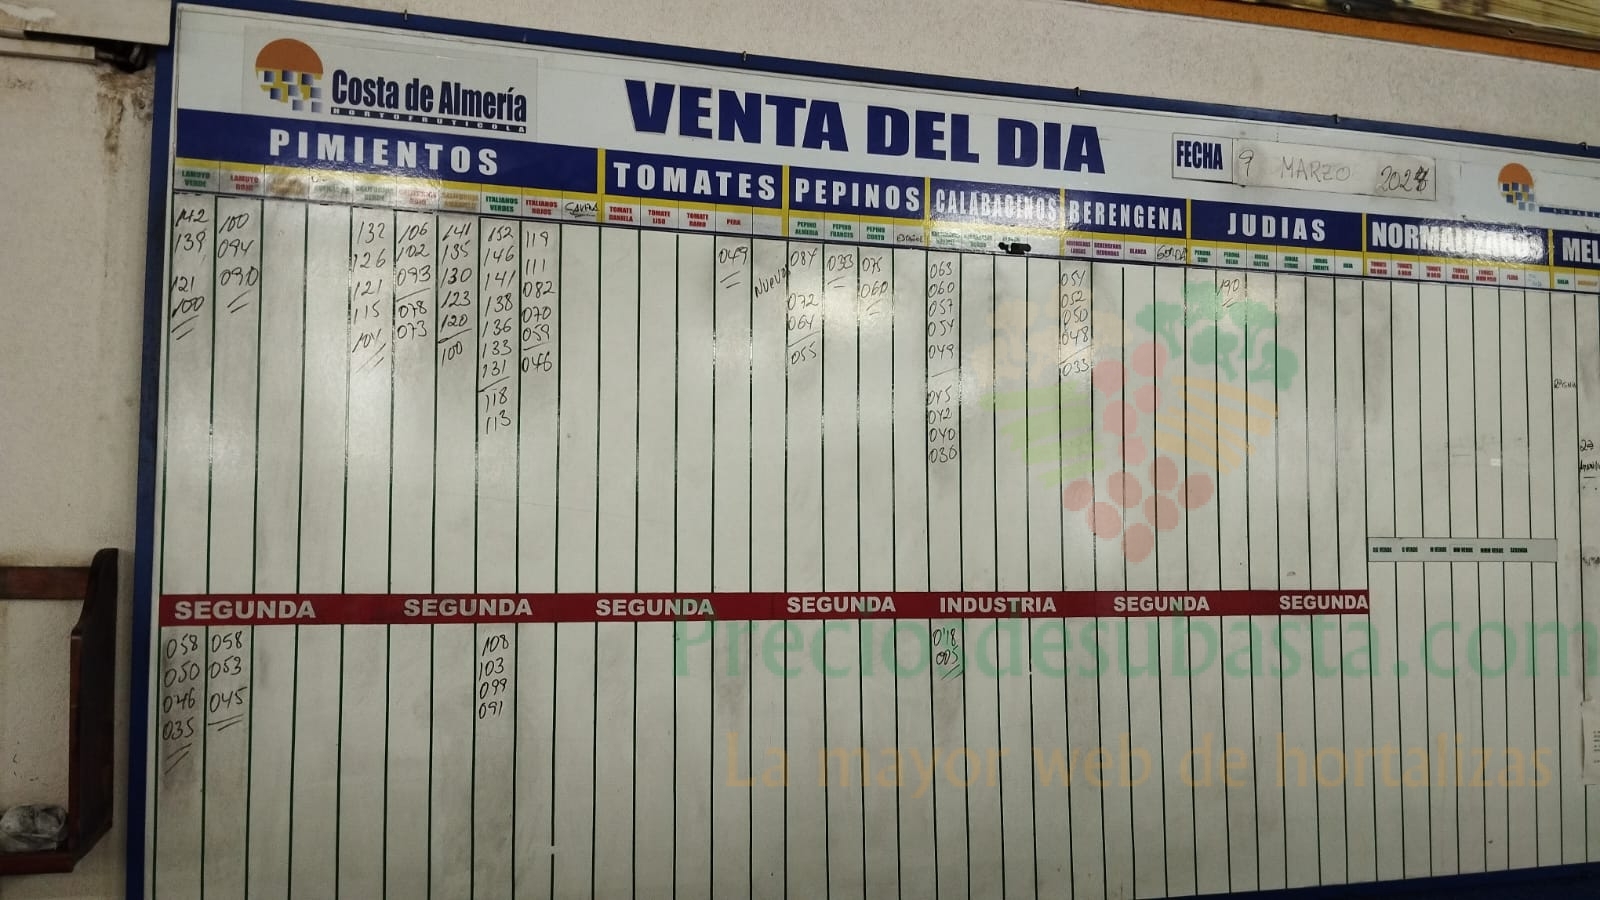 Costa de Almería
HORTOFRUTICOLA
VENTA DEL DIA
FECHA 9 MARZO
PIMIENTOS TOMATES PEPINOS CALABACINOS BERENGENA JUDIAS NORMALIZADOS MEL
LAMUYO VERDE
LAMUYO ROJO
ITALIANOS VERDES
ITALIANOS ROJOS
TOMATE DANIELA
TOMATE LISO
TOMATE RAMO
PERA
PEPINO ALMERIA
PEPINO FRANCES
PEPINO CORTO
ESPAÑOL
BLANCA
142
139
121
100
100
094
090
132
126
121
115
104
106
102
093
078
073
141
135
130
123
120
100
152
146
141
138
136
133
131
118
113
119
111
082
070
059
046
049
Nuevo
087
072
064
055
033
075
060
063
060
057
054
049
045
042
040
036
054
052
050
048
033
190
SEGUNDA SEGUNDA SEGUNDA SEGUNDA INDUSTRIA SEGUNDA SEGUNDA
058
050
046
035
058
053
045
108
103
099
091
0'18
005
Preciosdesubasta.com
La mayor web de hortalizas